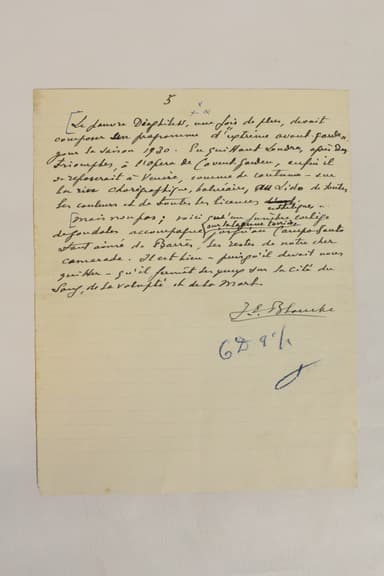 5
[Le pauvre Diaghilew, une fois de plus, devait
composer un programme d'"extrême avant-garde"
pour la saison 1930. En quittant Londres, après des
triomphes, à l'opéra de Covent Garden, enfin il
se reposerait à Venise, comme de coutume - sur
la rive chorégraphique, balnéaire, au Lido de toutes
les couleurs et de toutes les licences
esthétiques -
[mais non pas; voici qu'un funèbre cortège
de gondoles accompagne sur la lagune
jusqu'au Campo Santo
tant aimé de Barrès, les restes de notre cher
camarade. Il est bien - puisqu'il devait nous
quitter - qu'il fermât ses yeux sur la Cité du
Sang, de la Volupté et de la Mort.
J. E. Blanche